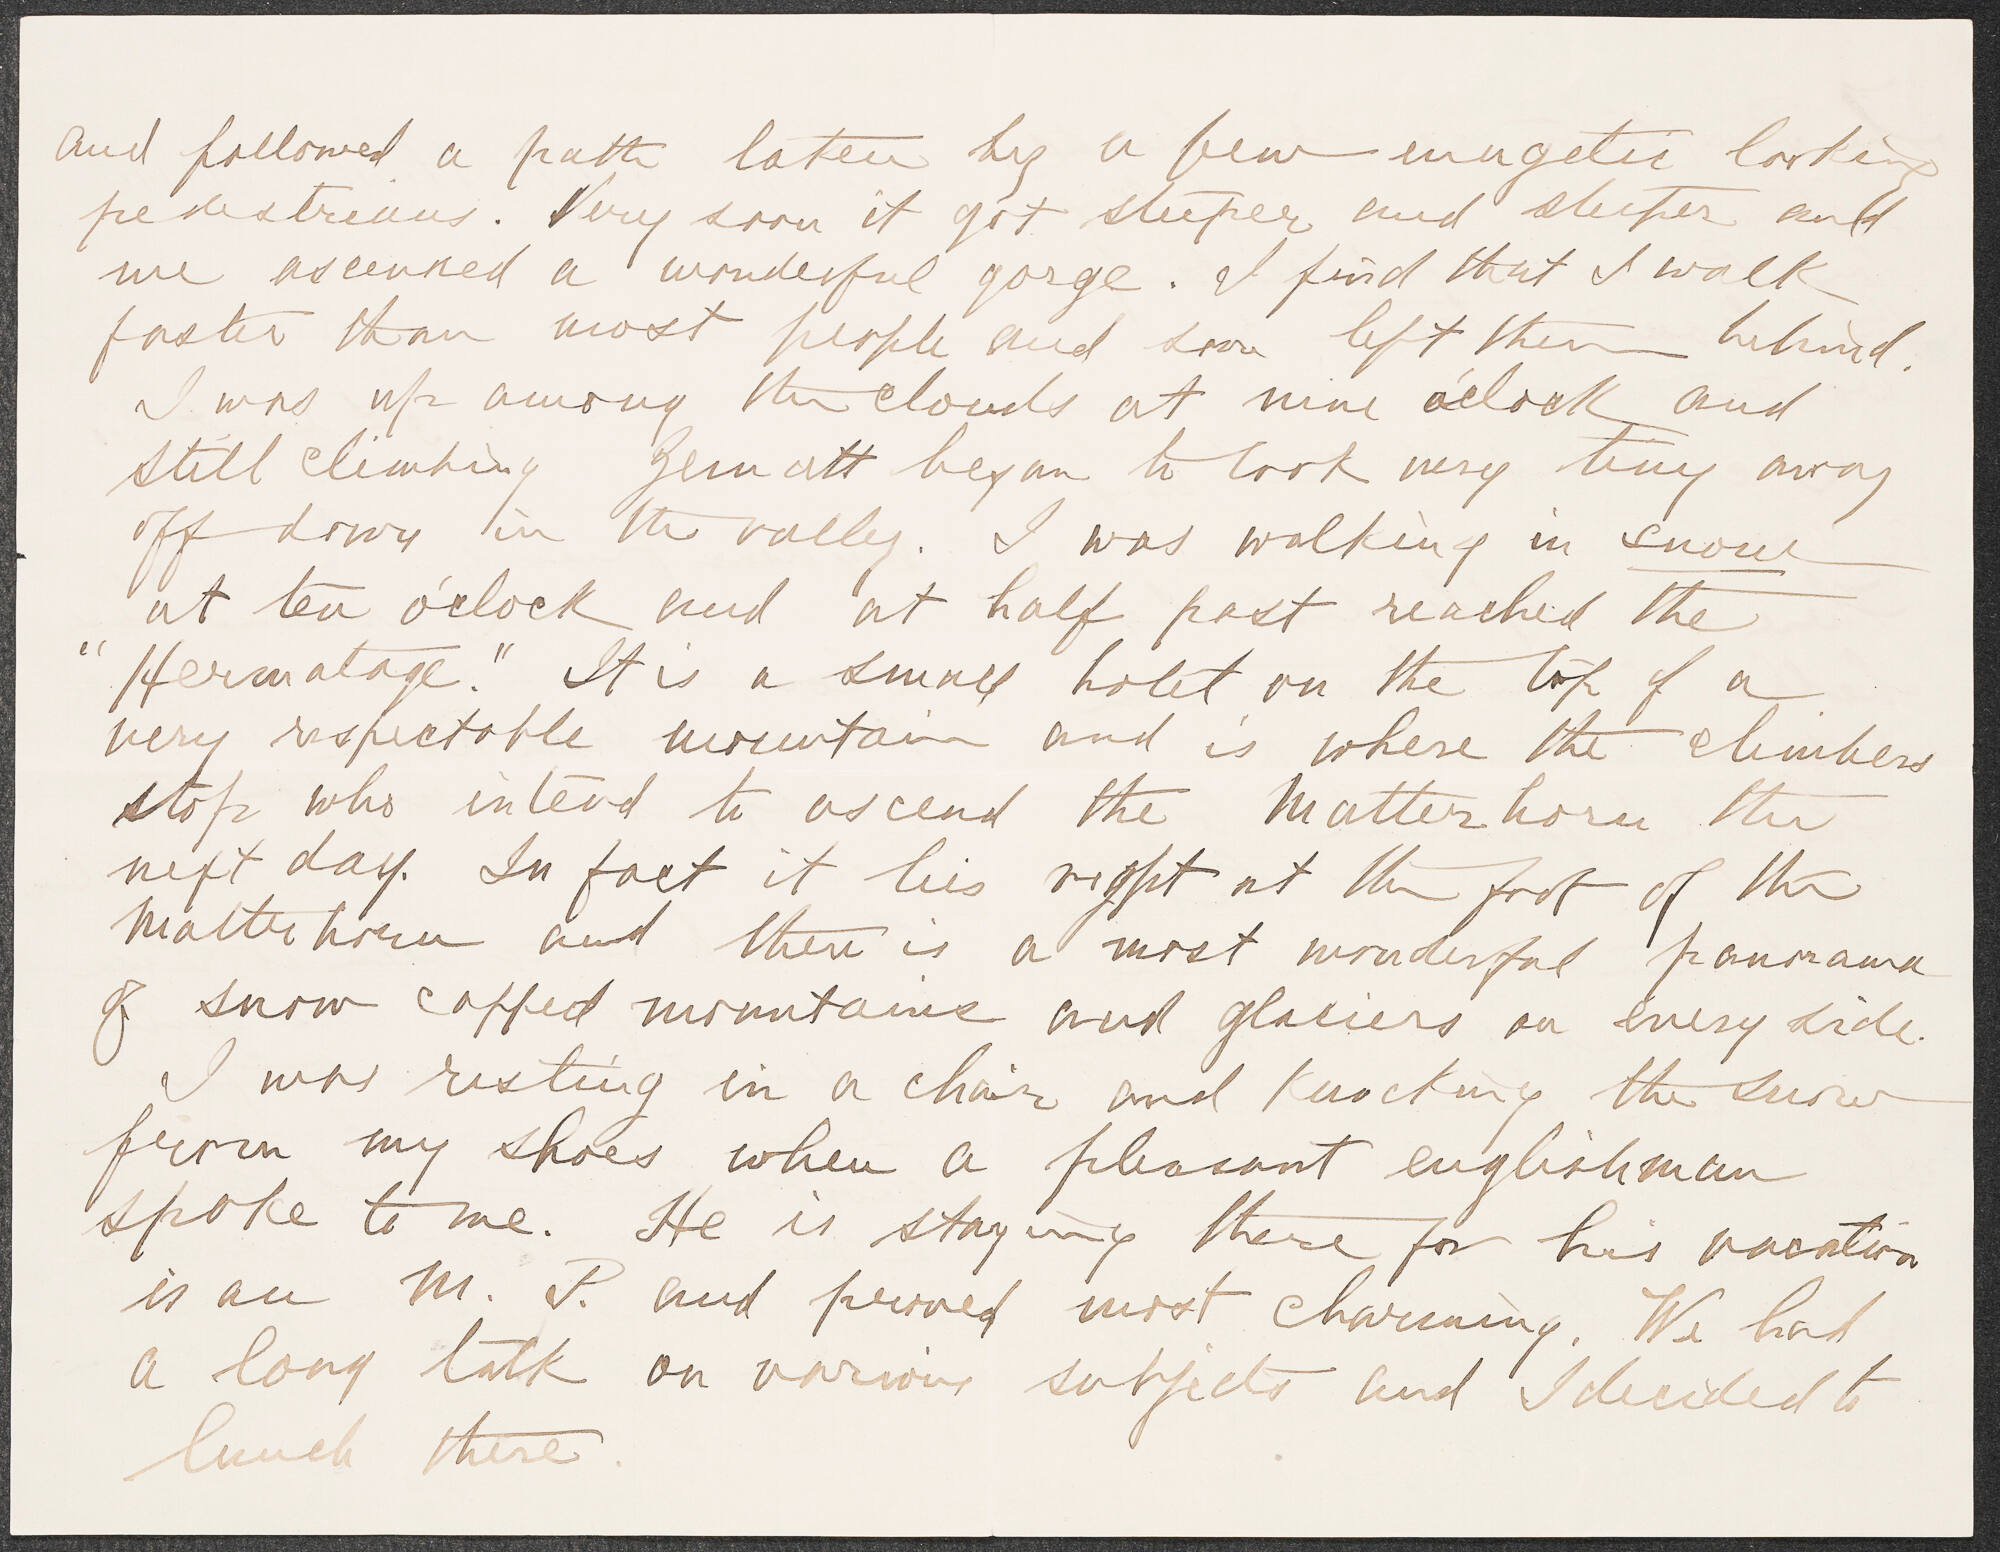 and followed a path taken by a few enugetic looking
pedestrians. Very soon it got steeper and steeper and
we ascended a wonderful gorge. I find that I walk
faster than most people and soon left them behind.
I was up among the clouds at nine o'clock and
still climbing Zermatt began to look very tiny away
off down in the valley. I was walking in snow
at ten o'clock and at half past reached the
"Hermatage." It is a small hotel on the top of a
very respectable mountain and is where the climbers
stop who intend to ascend the Matterhorn the
next day. In fact it lies right at the foot of the
Matterhorn and there is a most wonderful panorama
of snow capped mountains and glaciers on every side.
I was resting in a chair and knocking the snow
from my shoes when a pleasant englishman
spoke to me. He is staying there for his vacation
is an M. P. and proved most charming. We had
a long talk on various subjects and I decided to
lunch there.